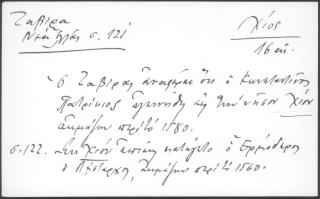 Ζαβίρα
Νέα Ἑλλάς σ. 121
Χίος
16 αἰ.
ὁ Ζαβίρας ἀναφέρει ὅτι ὁ Κωνσταντῖνος
Πατρίκιος ἐγεννήθη εἰς τὴν νῆσον Χίον
ἀκμάζων περὶ τὸ 1580.
σ. 122. Ἐκ Χίου ἐπίσης κατάγετο ὁ Ἑρμόδωρος
ὁ Λήσταρχος, ἀκμάζων περὶ τὸ 1560.